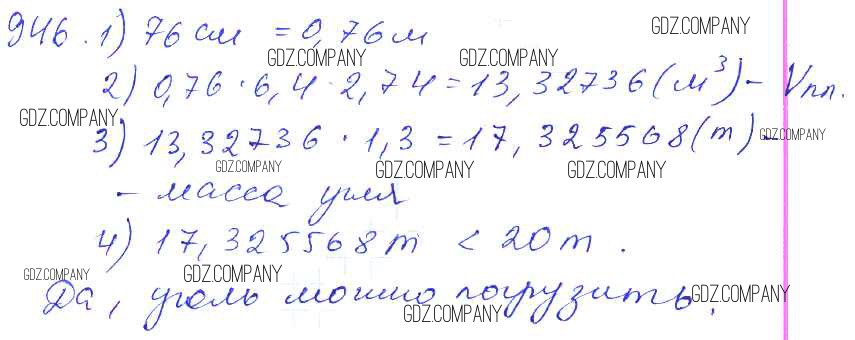 946. 1) 76 см = 0,76 м
2) 0,76 · 6,4 · 2,74 = 13,32736 (м³) – Vпл.
3) 13,32736 · 1,3 = 17,325568 (т) –
– масса угля
4) 17,325568 т < 20 т.
Да, уголь можно погрузить.
GDZ.COMPANY
GDZ.COMPANY
GDZ.COMPANY
GDZ.COMPANY
GDZ.COMPANY
GDZ.COMPANY
GDZ.COMPANY
GDZ.COMPANY
GDZ.COMPANY
GDZ.COMPANY
GDZ.COMPANY
GDZ.COMPANY